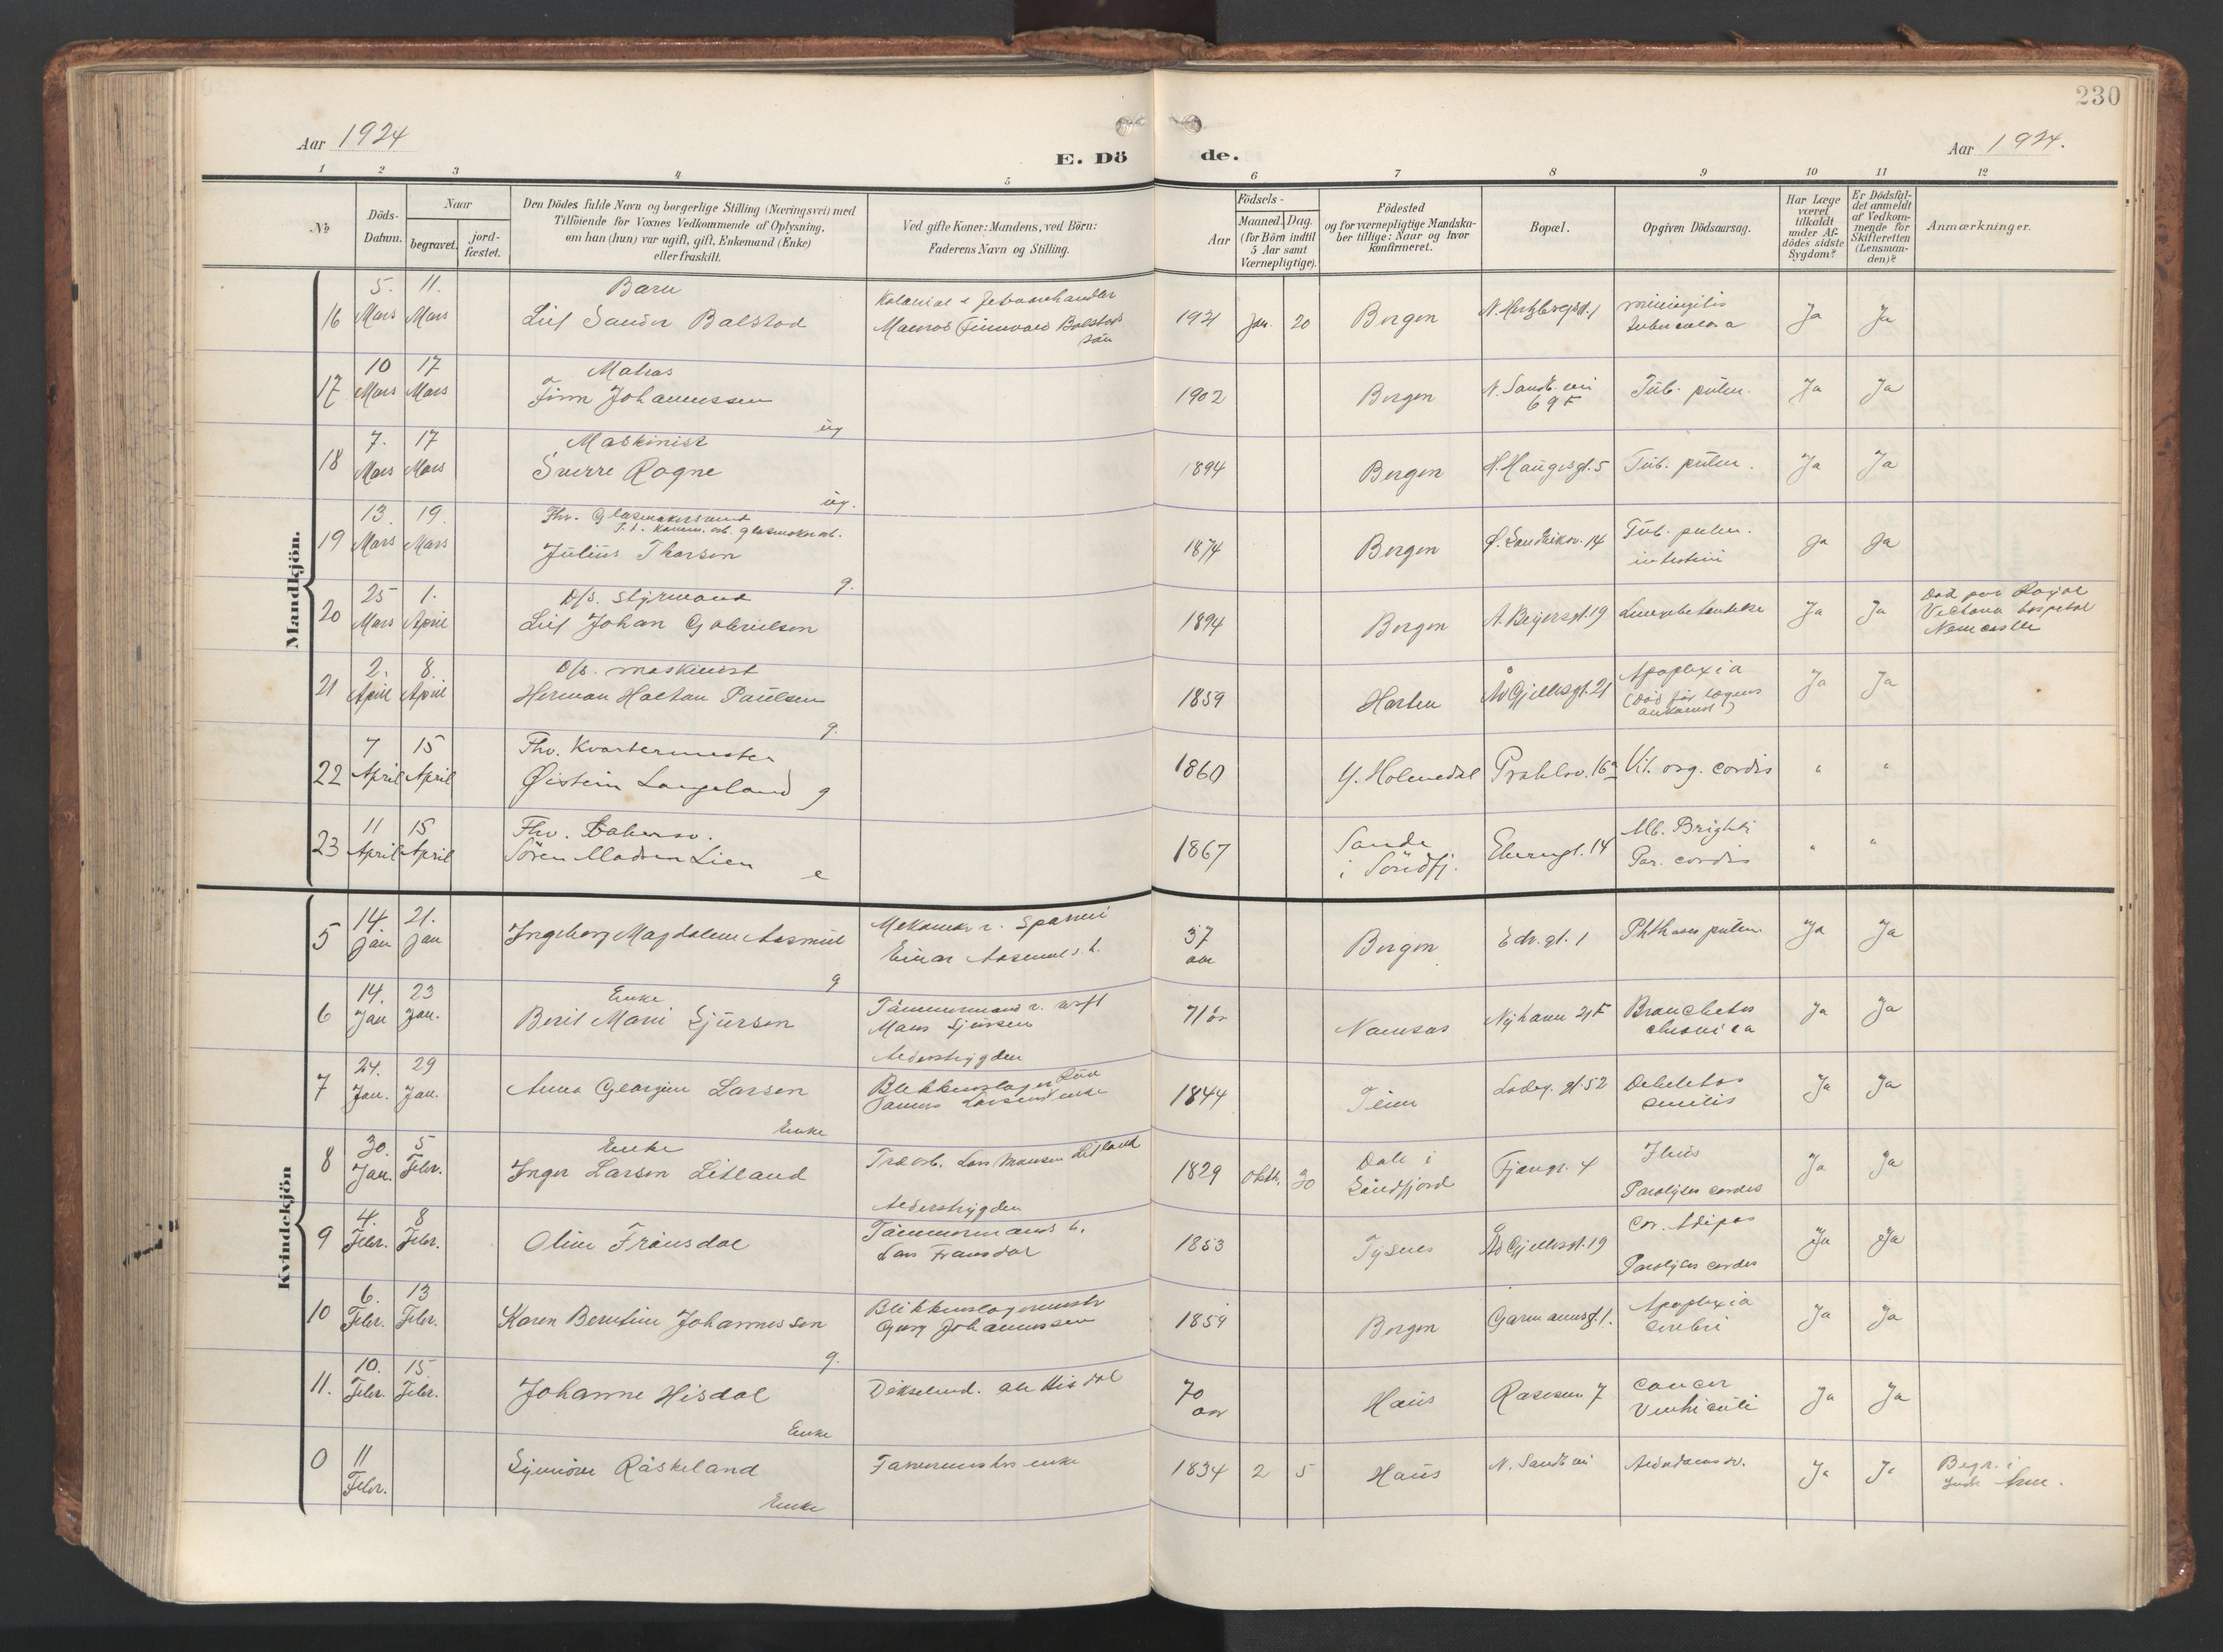 230
Aar 1924
E. Dö de.
Aar 1924.
1 2 3 4 5 6 7 8 9 10 11 12
No
Döds-Datum.
Naar
begravet.
jord-fæstet.
Den Dödes fulde Navn og borgerlige Stilling (Næringsvei) med
Tilföiende for Voxnes Vedkommende af Oplysning,
om han (hun) var ugift, gift, Enkemand (Enke)
eller fraskilt.
Ved gifte Koner: Mandens, ved Börn:
Faderens Navn og Stilling.
Födsels-
Aar
Maaned. Dag.
(for Börn indtil
5 Aar samt
Værnepligtige).
Födested
og for værnepligtige Mandska-
ber tillige: Naar og hvor
konfirmeret.
Bopæl.
Opgiven Dödsaarsag.
Har Læge
været
tilkaldt
under Af-
dödes sidste
Sygdom?
Er Dödsfal-
det anmeldt
af Vedkom-
mende for
Skifteretten
(Lensman-
den)?
Anmærkninger.
Mandkjön.
16 5. Mars 11. Mars Barn
Leif Sander Balstad 1921 Jan. 20 Bergen meningitis
tuberculosa Ja Ja
17 10 Mars 17 Mars Matros
Finn Johannessen ug 1902 Bergen N. Sandv. vei
69 F Tub. pulm. Ja Ja
18 7. Mars 17 Mars Maskinist
Sverre Rogne ug. 1894 Bergen H. Haugesgt. 5 Tub. pulm. Ja Ja
19 13. Mars 19. Mars Fhv.
Julius Thorsen g. 1874 Bergen Tub. pulm.
intestini Ja Ja
20 25 Mars 1. April D/s. styrmand
Leif Johan Gabrielsen 1894 Bergen A. Beyersgt. 19 Lungebetændelse Ja Ja Død paa Royal
Victoria hospital
Newcastle
21 2. April 8. April D/s. maskinist
Herman Paulsen g. 1859 Horten Gjellesgt. 21 Apoplexia
(død før lægens
ankomst) Ja Ja
22 7 April 15 April Fhv. Kvartermester
Øistein Langeland g 1860 Y. Holmedal Vit. org. cordis " "
23 11 April 15 April Fhv.
Sören Madsen Lien e 1867 Sande
i Söndfj. Mb. Brighti
Par. cordis " "
Kvindekjön
5 14. Jan 21. Jan Ingeborg Magdalene Aasmul g 37
aar Bergen Edv. gt. 1 Phthises pulm. Ja Ja
6 14. Jan 23 Jan. Enke
Berit Marie Sjursen Tømmermand v. verft
Mons Sjursen 71 år Namsos Nyhavn 21 F Bronchitis
chronica Ja Ja
7 24. Jan. 29 Jan. Anna Georgine Larsen Enke Alderstrygden
Blikkenslager
Larsens enke 1844 Ladeg. gt. 52 Debilitas
senilis Ja Ja
8 30. Jan. 5 Febr. Enke
Inger Larsen Litland Lars Monsen Litland 1829 Oktb. 30 Dale i
Söndfjord Fjøsgr. 4 Ileus
Paralyses cordis Ja Ja
9 4. Febr. 8 Febr. Oline Frønsdal Alderstrygden
Tømmermands h.
Lars Frønsdal 1853 Tysnes Gjellesgt. 19 Cor. Adipos
Paralyses cordis Ja Ja
10 6. Febr. 13 Febr. Karen Berntine Johannessen g. Blikkenslagermester
Georg Johannessen 1859 Bergen Garmannsgt. 1. Apoplexia
cerebri Ja Ja
11. 10. Febr. 15 Febr. Johanne Hisdal Enke Ole Hisdal 70
aar Haus 7 Cancer
Ventriculi Ja Ja
0 11 Febr. Synnöve Råskeland Enke enke 1834 2 5 Haus N. Sandv. vei Alderdomssv. Ja Ja Begr. i